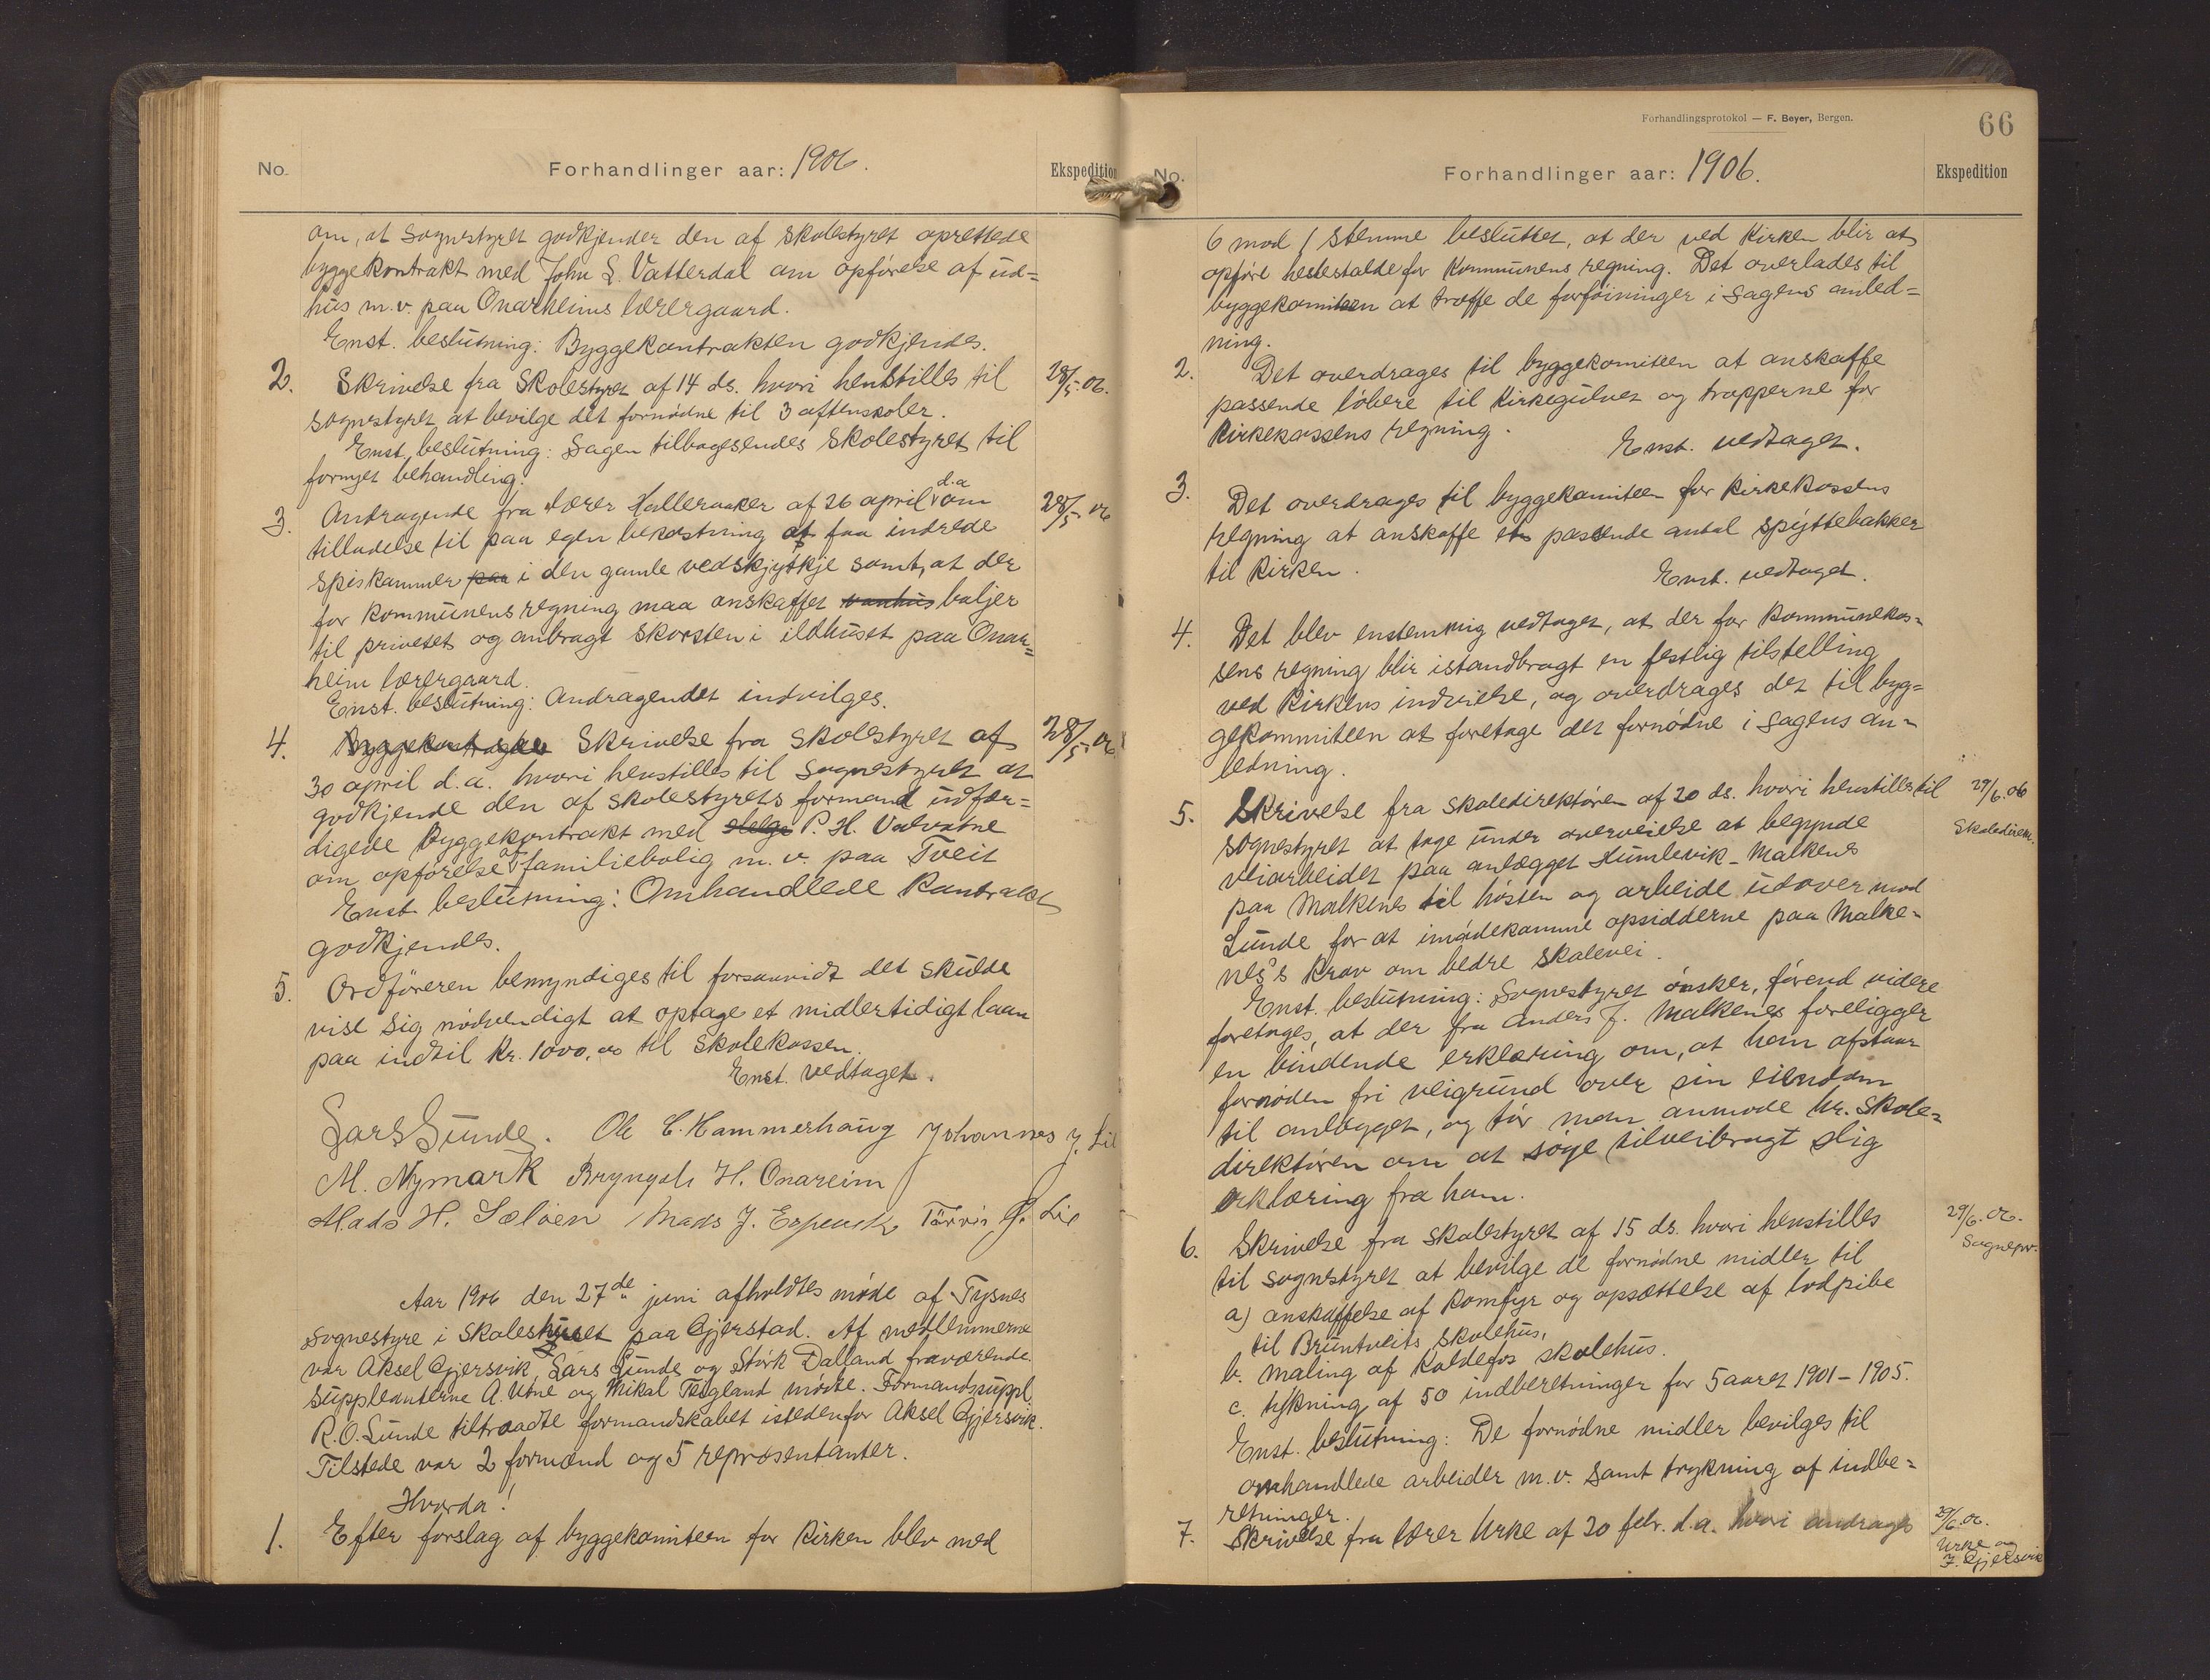 No. Forhandlinger aar: 1906. Ekspedition
om, at Sognestyret godkjender den af skolestyret oprettede
byggekontrakt med John L. Vatterdal om opførelse af ud=
hus m.v. paa Onarheims lærergaard.
Enst. beslutning: Byggekontrakten godkjendes.
2. Skrivelse fra Skolestyret af 14 ds. hvori henstilles til 28/5-06.
Sognestyret at bevilge det fornødne til 3 aftenskoler.
Enst. beslutning: Sagen tilbagesendes Skolestyret til
fornyet behandling.
3. Andragende fra lærer Halleraker af 26 april d.a om 28/5-06
tilladelse til paa egen bekostning at faa indrede
Spiskammer paa i den gamle vedskjytkje samt, at der
for kommunens regning maa anskaffes vanhus baljer
til privetet og anbragt skorsten i ildhuset paa Onar=
heim lærergaard.
Enst. beslutning: Andragendet indvilges.
4. Skrivelse fra Skolestyret af 28/5-06
30 april d.a. hvori henstilles til Sognestyret at
godkjende den af skolestyrets formand udfær=
digede Byggekontrakt med Helge P. H. Valvatne
om opførelse af familiebolig m.v. paa Tveit
Enst. beslutning: Omhandlede Kontrakt
godkjendes.
5. Ordføreren bemyndiges til forsaavidt det skulde
vise sig nødvendigt at optage et midlertidigt laan
paa indtil Kr. 1000,00 til Skolekassen.
Enst. vedtaget.
Lars Sunde. Ole E. Hammerhaug Johannes J. Lie
M. Nymark Bryngels H. Onareim
Mads H. Sæløen Mads J. Espevik G. Lie
Aar 1906 den 27de juni afholdtes møde af Tysnes
Sognestyre i Skoleshuset paa Gjerstad. Af medlemmerne
var Aksel Gjersvik, Lars Sunde og Størk Dalland fraværende.
Suppleanterne A. Utne og Mikal Teigland mødte. Formandssuppl.
R.O. Sunde tiltraadte formandskabet istedenfor Aksel Gjersvik.
Tilstede var 2 formænd og 5 repræsentanter.
Hvorda!
1. Efter forslag af byggekomiteen for Kirken blev med
Forhandlingsprotokol — F. Beyer, Bergen.
66
No. Forhandlinger aar: 1906. Ekspedition
6 mod 1 stemme besluttet, at der ved Kirken blir at
opføre hestestalde for Kommunens regning. Det overlades til
byggekomiteen at træffe de forføininger i sagens anled=
ning.
2. Det overdrages til byggekomiteen at anskaffe
passende løbere til Kirkegulvet og trapperne for
Kirkekassens regning.
Enst. vedtaget.
3. Det overdrages til byggekomiteen for Kirkekassens
regning at anskaffe et passende antal spyttebakker
til Kirken.
Enst. vedtaget.
4. Det blev enstemmig vedtaget, at der for Kommunekas=
sens regning blir istandbragt en festlig tilstelling
ved Kirkens indvielse, og overdrages det til byg=
gekommiteen at foretage det fornødne i sagens an=
ledning.
5. Skrivelse fra Skoledirektøren af 20 ds. hvori henstilles til 29/6.06
Sognestyret at tage under overveielse at begynde Skoledirekt.
veiarbeidet paa anlægget Humlevik-Malkenes
paa Malkenes til høsten og arbeide udover mod
Lunde for at imødekomme opsidderne paa Malke=
nes's krav om bedre skolevei.
Enst. beslutning: Sognestyret ønsker, førend videre
foretages, at der fra Anders J. Malkenes foreligger
en bindende erklæring om, at han afstaar
fornøden fri veigrund over sin eiendom
til anlægget, og tør man anmode hr. Skole=
direktøren om at søge tilveibragt slig
erklæring fra ham.
6. Skrivelse fra Skolestyret af 15 ds. hvori henstilles 29/6.06.
til Sognestyret at bevilge de fornødne midler til Sognepr.
a) anskaffelse af Komfyr og opsættelse af lodpibe
til Bruntveits Skolehus,
b. maling af Koldefos skolehus.
c. trykning af 50 indberetninger for 5aaret 1901-1905.
Enst. beslutning: De fornødne midler bevilges til
omhandlede arbeider m.v. samt trykning af indbe=
retninger.
7. Skrivelse fra lærer Urke af 20 febr. d.a. hvori andrages 29/6.06.
Urke og
J. Gjersvik